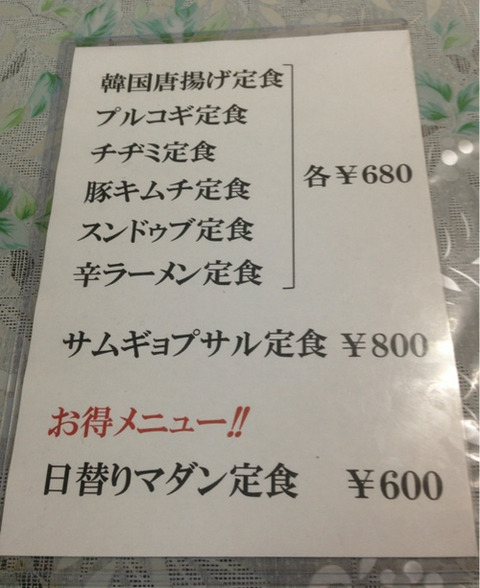 韓国唐揚げ定食
プルコギ定食
チヂミ定食
豚キムチ定食
スンドゥブ定食
辛ラーメン定食
各￥680
サムギョプサル定食 ￥800
お得メニュー!!
日替りマダン定食 ￥600